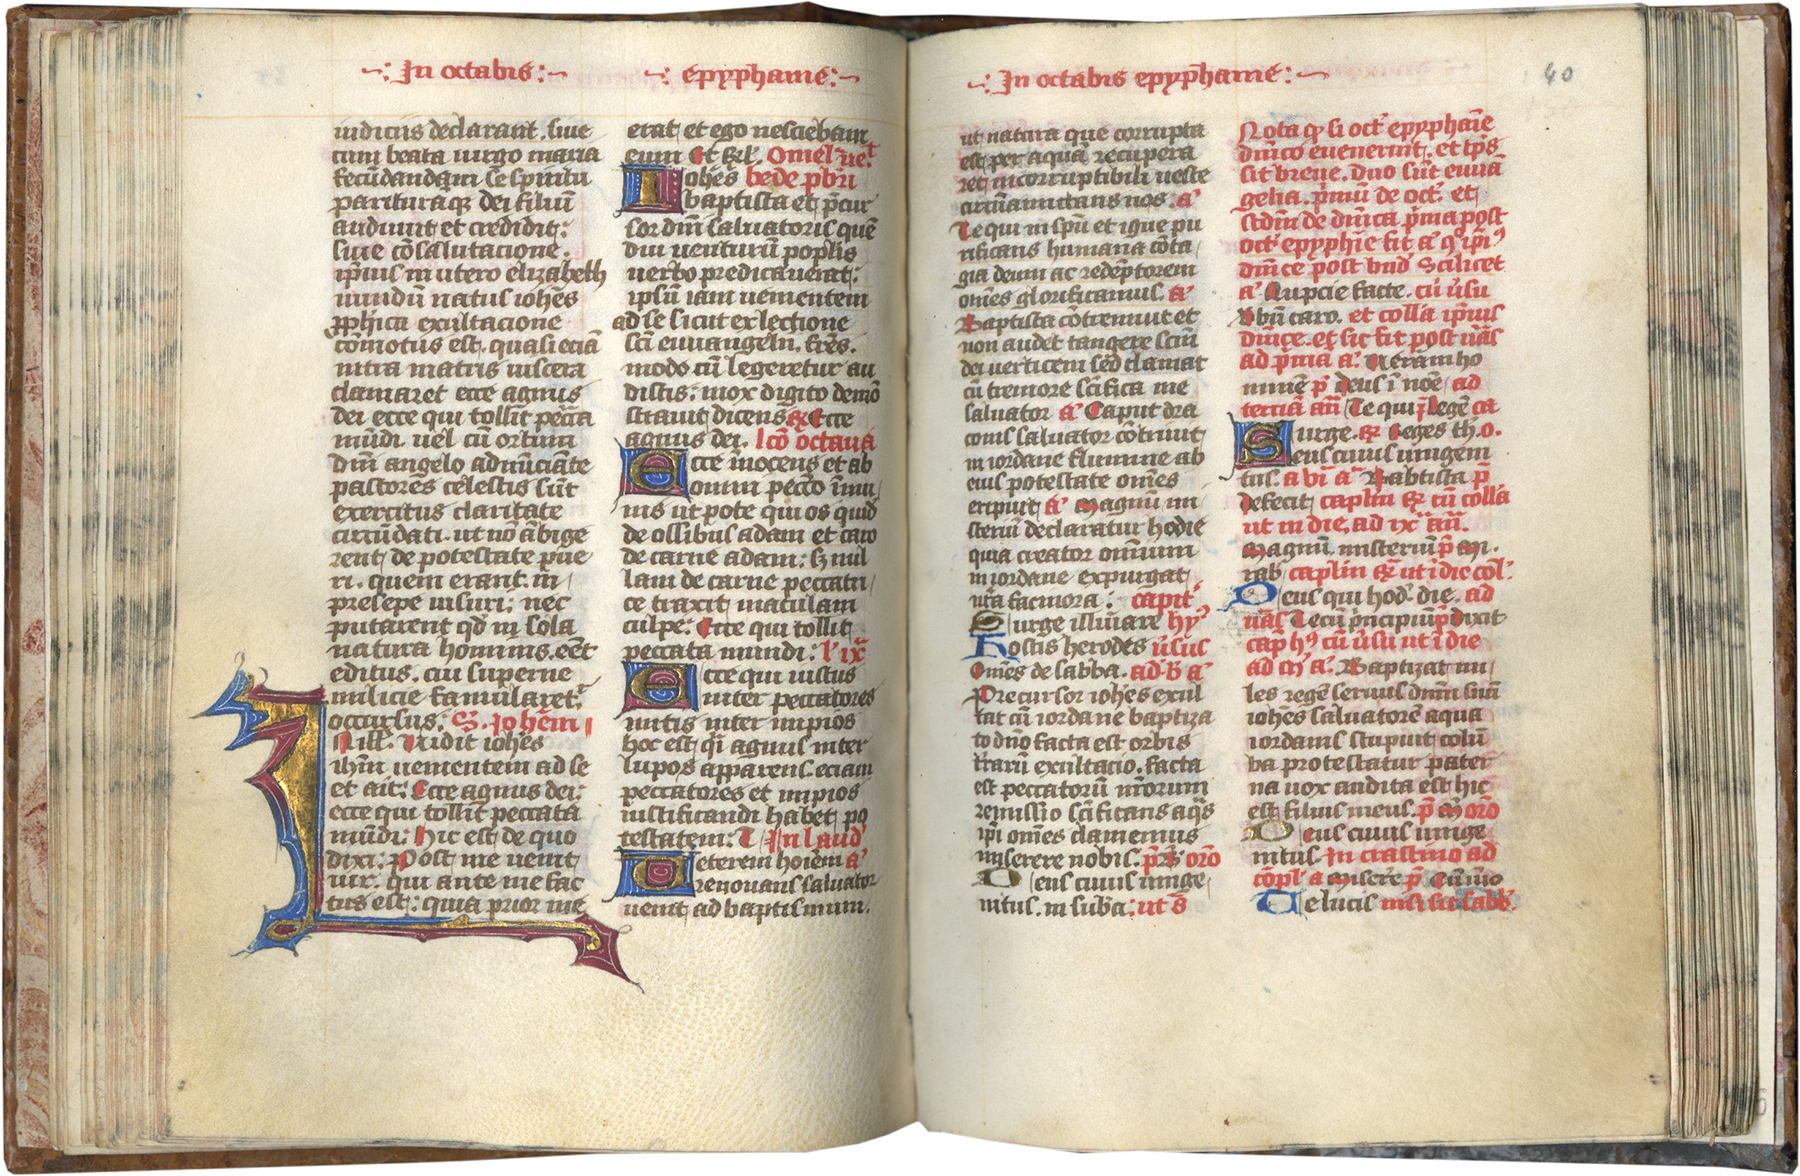 In octabis
epyphanie
iudicus declarant. siue
cum beata uirgo maria
fecūdandam se spiritu
parituraqꝫ dei filiū
audiuit et credidit:
siue cōsalutacione.
ip̄ius in utero elizabeth
nundū natus ioh̄es
ꝓph̄ica exultacione
cōmotus est. quasi eciā
intra matris uiscera
clamaret ecce agnus
dei ecce qui tollit pecc̄a
mūdi. uel cū ortum
dn̄i angelo adnūciāte
pastores celestis sūt
exercitus claritate
circūdati. ut nō ābige
rent de potestate pue
ri. quem erant in
presepe uisuri: nec
putarent qd̄ in sola
natura hominis. eēt
editus. cui superne
milicie famularet᷑
occursus:
Uidit ioh̄es
ih̄m uenientem ad se
et ait: Ecce agnus dei:
ecce qui tollit peccata
mūdi: Hic est de quo
dixi: Post me uenit
uir. qui ante me fac
tus est: quia prior me
erat et ego nesciebam
eum
ioh̄es bede p̄bri
baptista et p̄cur
sor dn̄i saluatoris quē
diu uenturū popl̄is
uerbo predicauerat:
ipsū iam uenientem
ad se sicut ex lectione
sc̄i euuangelii. fr̄es.
modo cū legeretur au
distis: mox digito demō
strauit dicens Ecce
agnus dei. lcō octaua
Ecce īnocens et ab
omni pecc̄o īmu
nis ut pote qui os quid
de ossibus adam et caro
de carne adam: sꝫ nul
lam de carne peccatri
ce traxit maculam
culpe: Ecce qui tollit
peccata mundi: l' ix
Ecce qui iustus
inter peccatores
mitis inter impios
hoc est q̄i agnus inter
lupos apparens. eciam
peccatores et impios
iustificandi habet po
testatem: In laud
Ueterem hoīem a'
renouans saluator
uenit ad baptismum.
In octabis epyphanie
40
ut natura que corrupta
est per aquā recupera
ret incorruptibili ueste
circūamictans nos: a'
Te qui in spū et igne pu
rificans humana cōta
gia deum ac redēptorem
om̄es glorificamus. a'
Baptista cōtremuit et
non audet tangere sc̄m
dei uerticem sed clamat
cū tremore sc̄ifica me
saluator a' Caput dra
conis saluator cōtriuit
in iordane flumine ab
eius potestate om̄es
eripuit a' Magnū mi
steriū declaratur hodie
quia creator omnium
in iordane expurgat
nr̄a facinora: capit'
Surge illuīare hy'
Hostis herodes u'sus
Om̄es de sabba. ad b a'
Precursor ioh̄es exul
tat cū iordane baptiza
to dn̄o facta est orbis
exultacio. facta
est peccatorū nr̄orum
remissio sc̄ificans aq̄s
ip̄i om̄es clamemus
miserere nobis. orō
Deus cuius unige
nitus. in sub'a: ut s̄
Nota qꝫ si oct' epyphāie
dn̄ico euenerint. et tp̄s
sit breue. duo sūt euuā
gelia. p̄mū de oct'. et
sc̄dm de dn̄ica p̄ma post
oct' epyph̄ie fit
dn̄ice post Scilicet
a' Nupcie facte. cū u'su
et coll'a ip̄ius
dn̄ice. et sic fit post
ad p̄ma a'.
Deus ī noē ad
terciā Te qui
Surge. Reges th.
Deus cuius unigeni
tus. Baptista
defecit caplm cū coll'a
ut in die. ad ix
Magnū. misteriū
caplm ut ī die col'.
Deus qui hod'. die. ad
Tecū p̄ncipiū Dixit
cū u'su ut ī die
ad a'. Baptizat mi
les regē seruus dnm suū
ioh̄es saluatorē aqua
iordanis stupuit colū
ba protestatur pater
na uox audita est hic
est filius meus. orō
Deus cuius unige
nitus. In crastino ad
cōpl' a Misere
Ie lucis nisi sit sabb'.